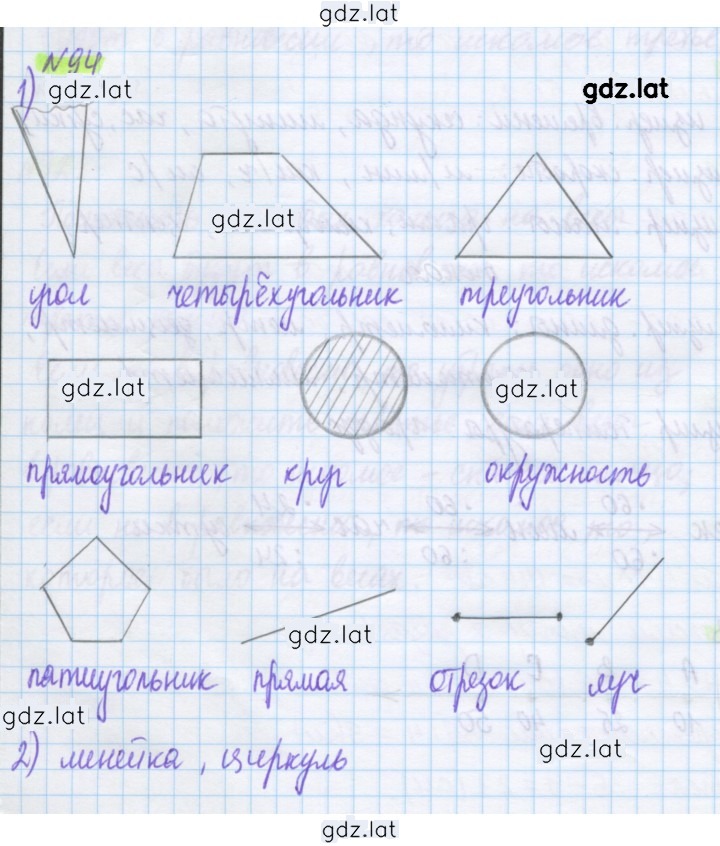 gdz.lat
№94
1) gdz.lat gdz.lat
gdz.lat
угол четырёхугольник треугольник
gdz.lat gdz.lat
прямоугольник круг окружность
gdz.lat
пятиугольник прямая отрезок луч
gdz.lat
2) линейка, циркуль gdz.lat
gdz.lat